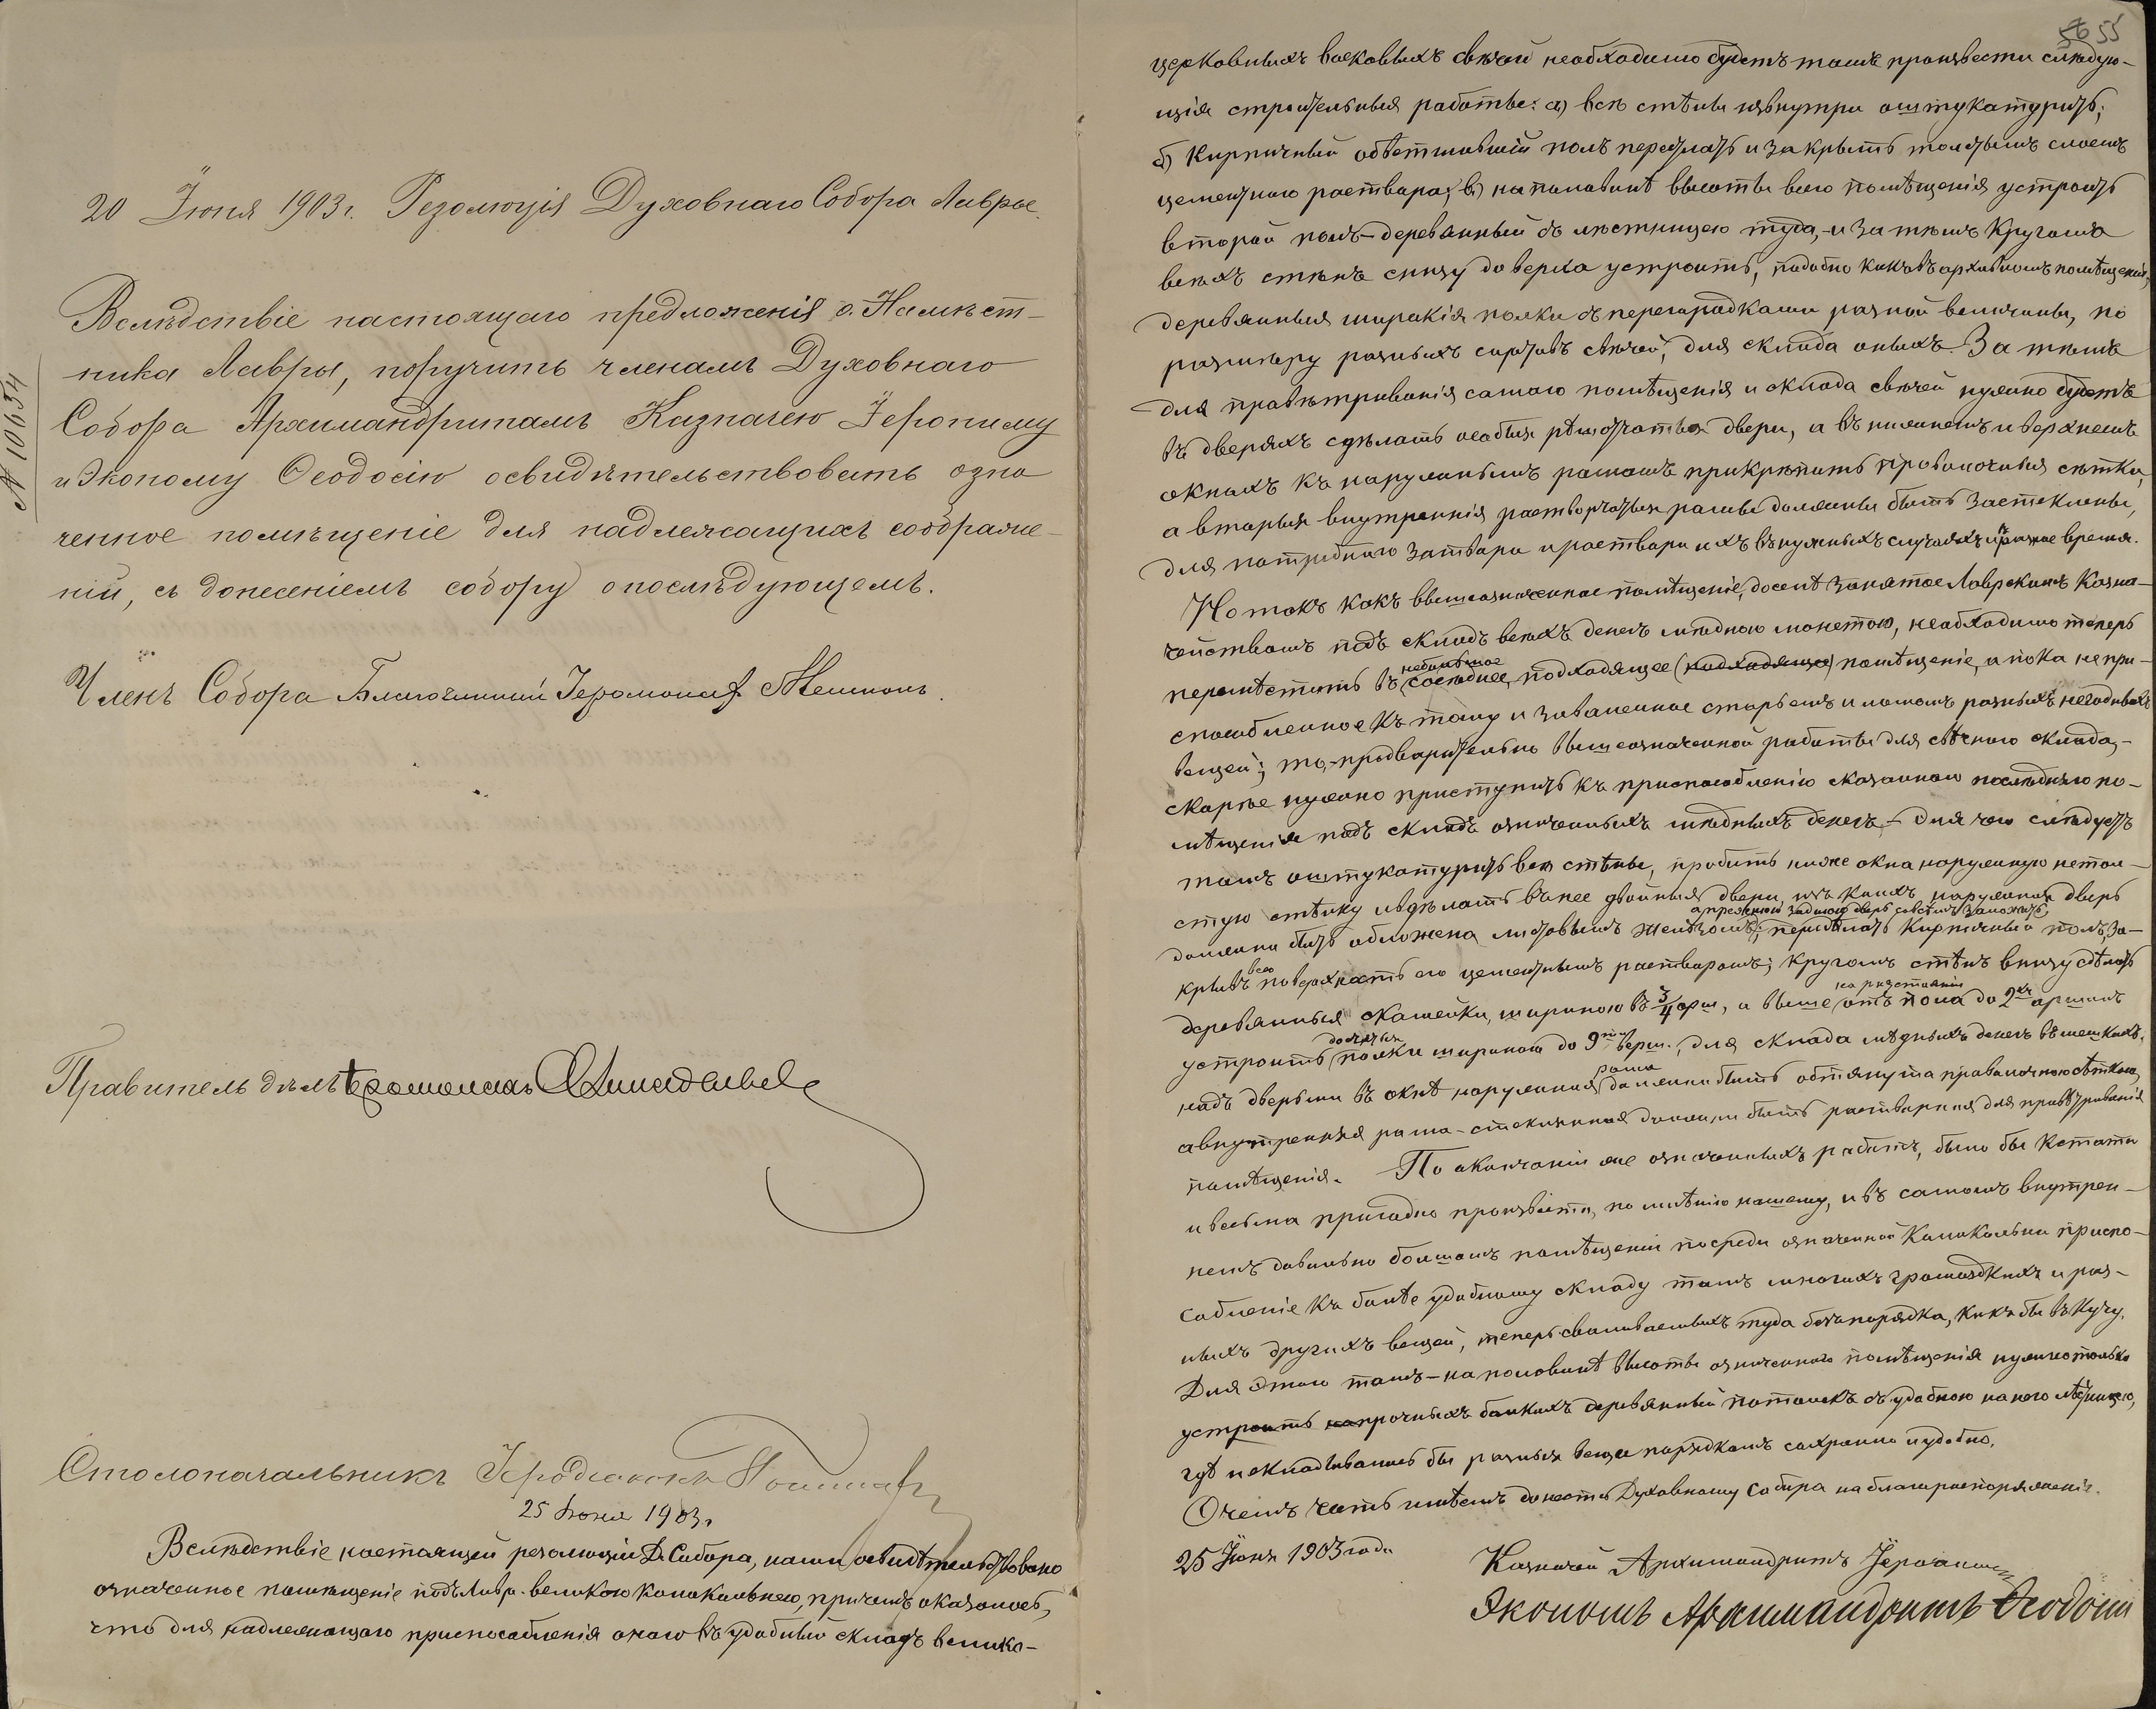 20 Іюня 1903 г. Резолюція Духовнаго Собора Лавры.
№ 10654
Вслѣдствіе настоящаго предложенія о. Намѣст-
ника Лавры, поручить членамъ Духовнаго
Собора Архимандритамъ Казначею Іерониму
и Эконому Ѳеодосію освидѣтельствовать озна
ченное помѣщеніе для надлежащихъ соображе-
ній, съ донесеніемъ собору о послѣдующемъ.
Членъ Собора Благочинный Іеромонах
Правитель дѣлъ Іеромонахъ
Столоначальникъ Іеродіаконъ
25 Іюня 1903 г.
Вслѣдствіе настоящей резолюціи Д. Собора, нами освидѣтельствовано
означенное помѣщеніе подъ Лавр. великою колокольнею, причемъ оказалось,
что для надлежащаго приспособленія онаго въ удобный складъ велико-
55
церковныхъ восковыхъ свѣчей необходимо будетъ тамъ произвести слѣдую-
щія строительныя работы: а) всѣ стѣны извнутри оштукатурить;
б) Кирпичный обветшавшій полъ передѣлать и закрыть толстымъ слоемъ
цементнаго раствора; в) на половинѣ высоты всего помѣщенія устроить
второй полъ-деревянный съ лѣстницею туда, - и затѣмъ кругомъ
всѣхъ стѣнъ снизу доверха устроить, подобно какъ въ архивномъ помѣщеніи,
деревянныя широкія полки съ перегородками разной величины, по
размѣру разныхъ сортовъ свѣчей, для склада оныхъ. Затѣмъ
для провѣтриванія самаго помѣщенія и склада свѣчей нужно будетъ
въ дверяхъ сдѣлать особыя рѣшотчатыя двери, а въ нижнемъ и верхнемъ
окнахъ къ наружнымъ рамамъ прикрѣпить проволочныя сѣтки,
а вторыя внутреннія растворчатыя рамы должны быть застеклены,
для потребнаго затвора и раствора ихъ въ нужныхъ случаяхъ и разное время.
Но такъ какъ вышеозначенное помѣщеніе, доселѣ занятое Лаврскимъ Казна-
чействомъ подъ складъ всѣхъ денегъ мѣдною монетою, необходимо теперь
перемѣстить въ небольшое сосѣднее, подходящее (подходящее) помѣщеніе, а пока непри-
способленное къ тому и заваленное старьемъ и ломомъ разныхъ негодныхъ
вещей; то, - предварительно вышеозначенной работы для свѣчного склада, -
скорѣе нужно приступить къ приспособленію сказаннаго послѣдняго по-
мѣщенія подъ складъ означенныхъ мѣдныхъ денегъ, - для чего слѣдуетъ
тамъ оштукатурить всѣ стѣны, пробить ниже окна наружную нетол-
стую стѣнку и сдѣлать въ нее двойныя двери, изъ коихъ наружная дверь
должна быть обложена листовымъ желѣзомъ, а прежнюю заднюю дверь совсѣмъ заложить; передѣлать кирпичный полъ, за-
крывъ всю поверхность его цементнымъ растворомъ; кругомъ стѣнъ внизу сдѣлать
деревянныя скамейки, шириною въ 3/4 арш., а выше на разстояніи отъ пола до 2хъ аршинъ
устроить досчатыя полки шириною до 9ти верш., для склада мѣдныхъ денегъ въ мешкахъ,
надъ дверьми въ окнѣ наружная рама должна быть обтянута проволочною сѣткою,
а внутренняя рама - стеклянная должна быть растворная для провѣтриванія
помѣщенія. По окончаніи же означенныхъ работъ, было бы кстати
и весьма пригодно произвести, по мнѣнію нашему, и въ самомъ внутрен-
немъ довольно большомъ помѣщеніи посреди означенной Колокольни приспо-
собленіе къ болѣе удобному складу тамъ многихъ громоздкихъ и раз-
ныхъ другихъ вещей, теперь сваливаемыхъ туда безъ порядка, какъ бы въ кучу.
Для этого тамъ - на половинѣ высоты означеннаго помѣщенія нужно только
устроить на прочныхъ балкахъ деревянный потолокъ съ удобною на него лѣстницею,
гдѣ и складывались бы разныя вещи порядкомъ сохранно и удобно.
О чемъ честь имѣемъ донести Духовному Собору на благораспоряженіе.
25 Іюня 1903 года Казначей Архимандритъ Іеронимъ
Экономъ Архимандритъ Ѳеодосій